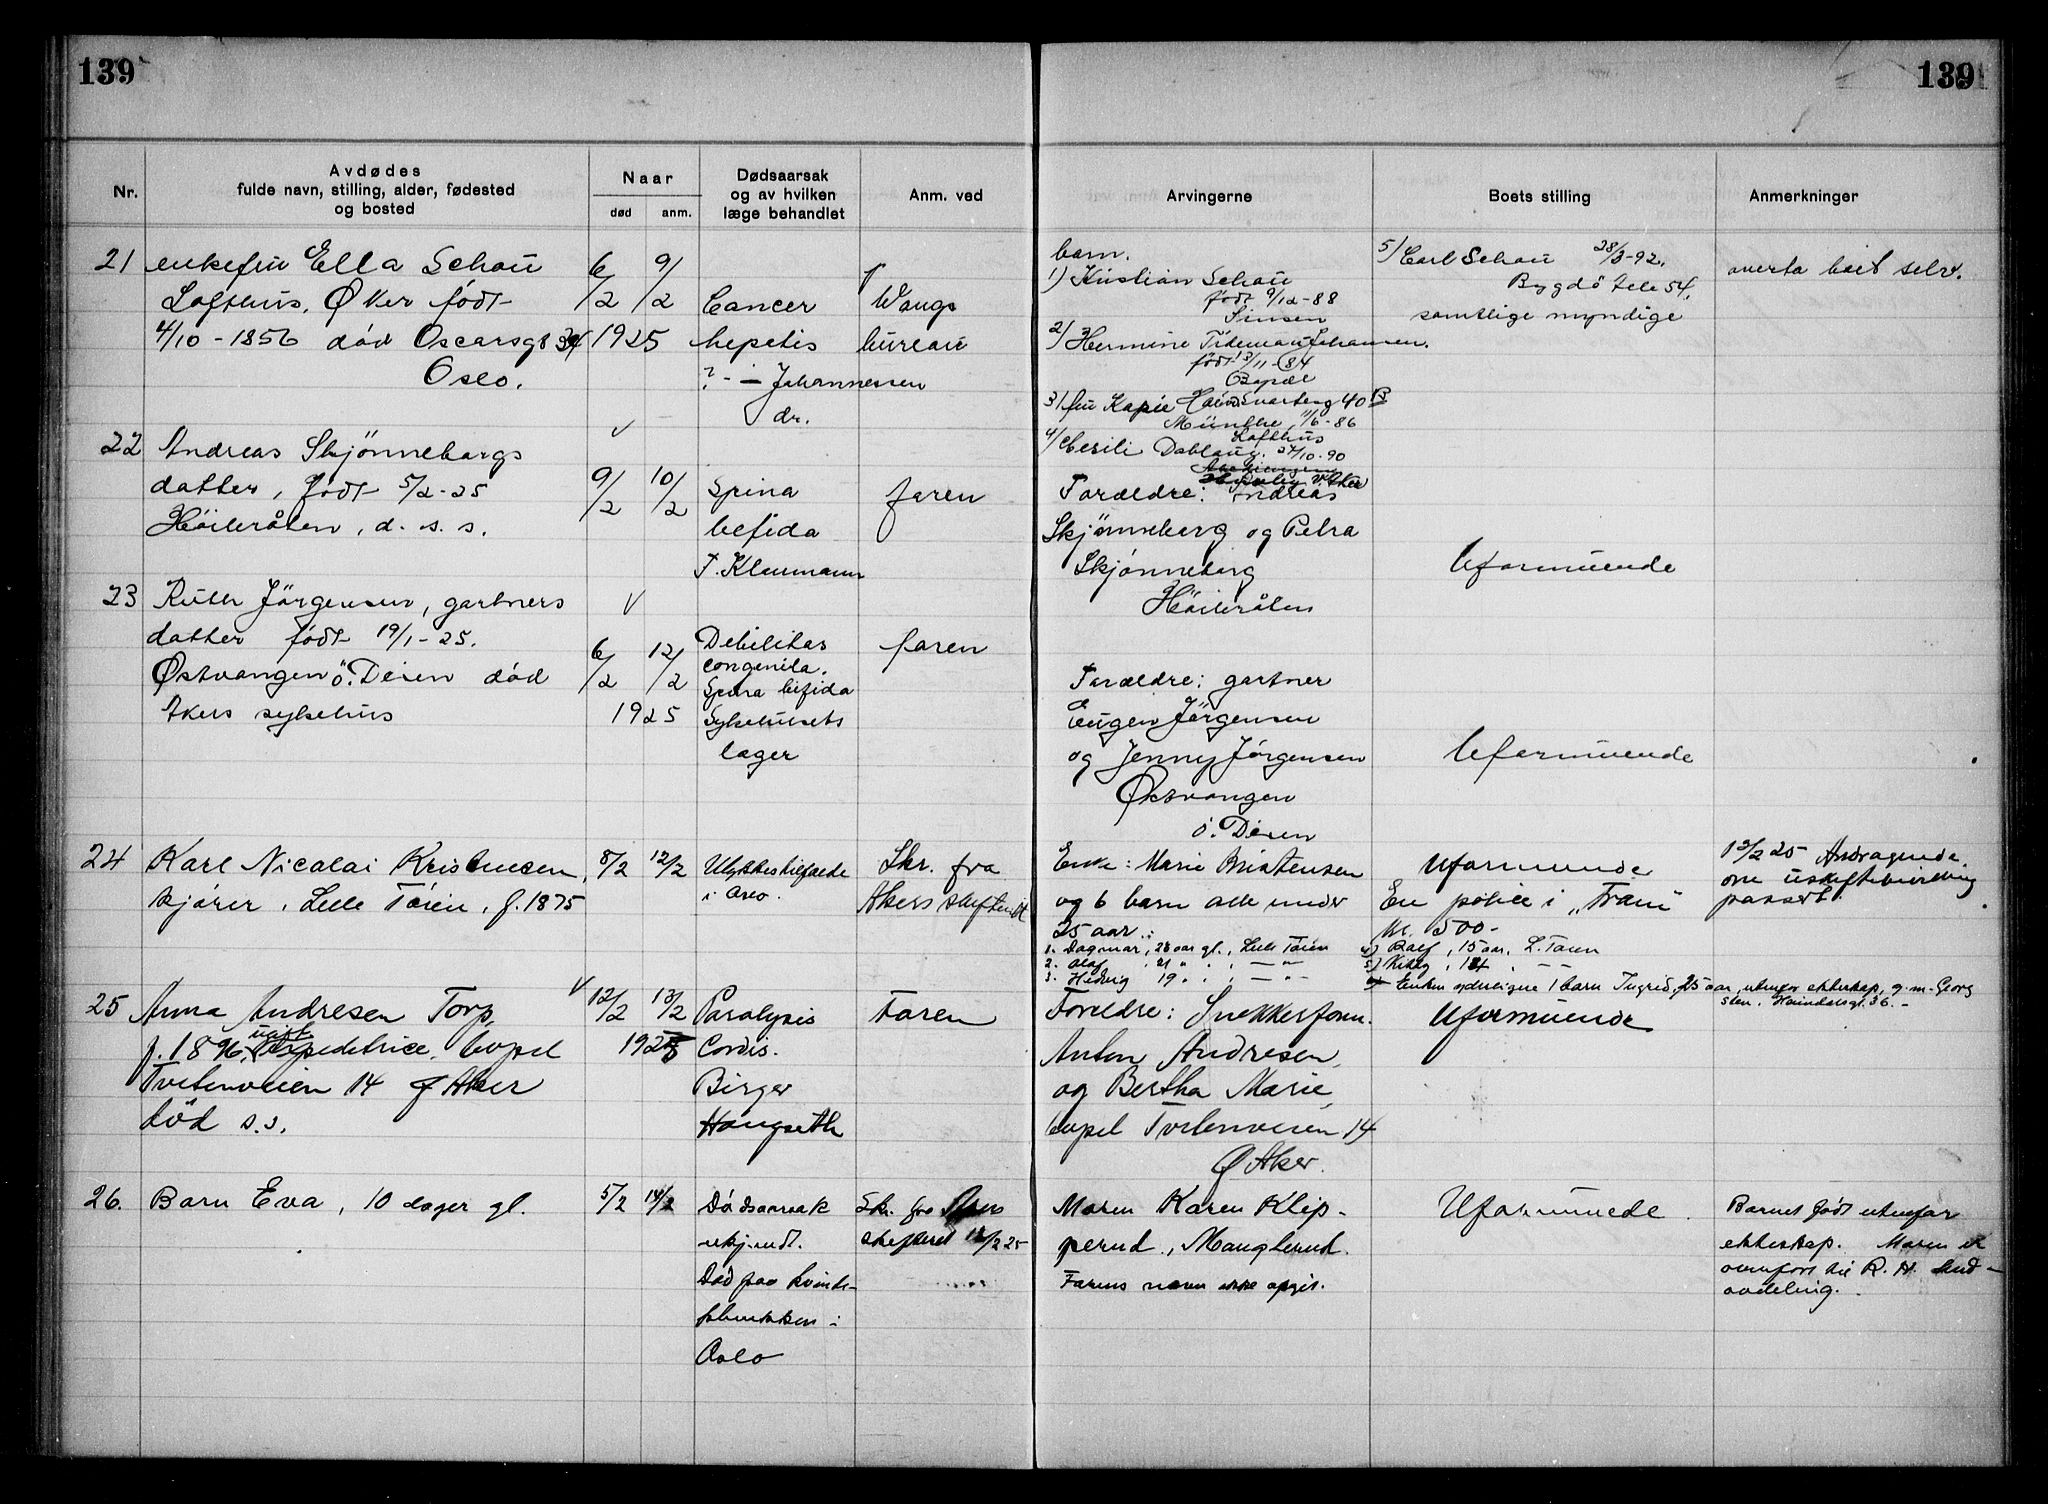 139
139
Nr.
Avdødes
fulde navn, stilling, alder, fødested
og bosted
Naar
død
anm.
Dødsaarsak
og av hvilken
læge behandlet
Anm. ved
Arvingerne
Boets stilling
Anmerkninger
21
enkefru Ella Schou
Lofthus, Ø Aker født
4/10 - 1856 død Oscarsgt 34
Oslo.
6/2
9/2
1925
Cancer
hepatis
Johannessen
dr.
Wangs
bureau
barn.
1) Kristian Schou
født 9/12 - 88
Sinsen
2) Hermine Tidemand Johansen.
født 13/11 - 84
3) fru Kapie
Munthe, 11/6 - 86
Lofthus
4) Cecili Dablaug. 24/10 - 90
5) Carl Schou 28/3 - 92.
Bygdö
samtlige myndige
overta boet selv.
22
Andreas Skjönnebergs
datter, født 5/2 - 25
Höibråten, d. s. s.
9/2
10/2
Spina
befida
T. Klaumann
faren
Foreldre: Andreas
Skjönneberg og Petra
Skjönneberg
Höibråten
Uformuende
23
Ruth Jörgensen, gartners
datter født 19/1 - 25.
Østvangen ö. Disen død
Akers sykehus
6/2
12/2
1925
Debilitas
congenita.
Spina bifida
Sykehusets
læger
faren
Foreldre: gartner
Eugen Jörgensen
og Jenny Jörgensen
Østvangen
ö. Disen
Uformuende
24
Karl Nicolai Kristensen,
kjører, Lille Töien, f. 1875
8/2
12/2
Ulykkestilfælde
i Oslo.
Skr. fra
Akers skifterett
Enke: Marie Kristensen
og 6 barn alle under
25 aar.:
1. Dagmar, 23 aar gl., Lille Töien
2. Olaf, 21 " , — " —
3. Hedvig 19 " , — " —
Uformuende
En police i „Fram"
kr. 500 -
4) Ralf, 15 aar, L. Töien
Enken yderligere 1 barn Ingrid, 25 aar, utenfor ekteskap, g. m. Georg
13/2 25 Andragende
om uskiftebevilling
passert.
25
Anna Andresen Torp,
f. 1896, ugift Expeditrice, bopel
Tvetenveien 14 Ø Aker
død s.s.
12/2
13/2
1925
Paralysis
Cordis.
Birger
Haugseth
Faren
Foreldre: Snekkerform.
Anton Andresen,
og Bertha Marie,
bopel Tvetenveien 14
Ø Aker.
Uformuende
26.
Barn Eva, 10 dager gl.
5/2
14/2
Dødsaarsak
ukjendt.
Død paa Kvinde-
klinikken i
Oslo
Skr. fra Akers
skifteret 13/2 25
Moren Karen Klip-
perud, Manglerud.
Farens navn ikke opgit.
Uformuede
Barnet født utenfor
ekteskap. Moren er
overført til R. H.
avdeling.